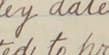 ley date
ted to h